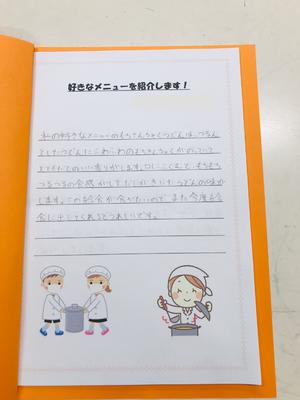 好きなメニューを紹介します！
私の好きなメニューのもちきんちゃくうどんは、つるん
としたうどんにふわふわのもちきんちゃくがのっていて
とてもだしのいい香りがします。口にふくむと、もちもち
つるつるの食感がしてだしがきいたうどんの味が
します。この給食が食べたいので、また今度も給
食に出してくれるとうれしいです。